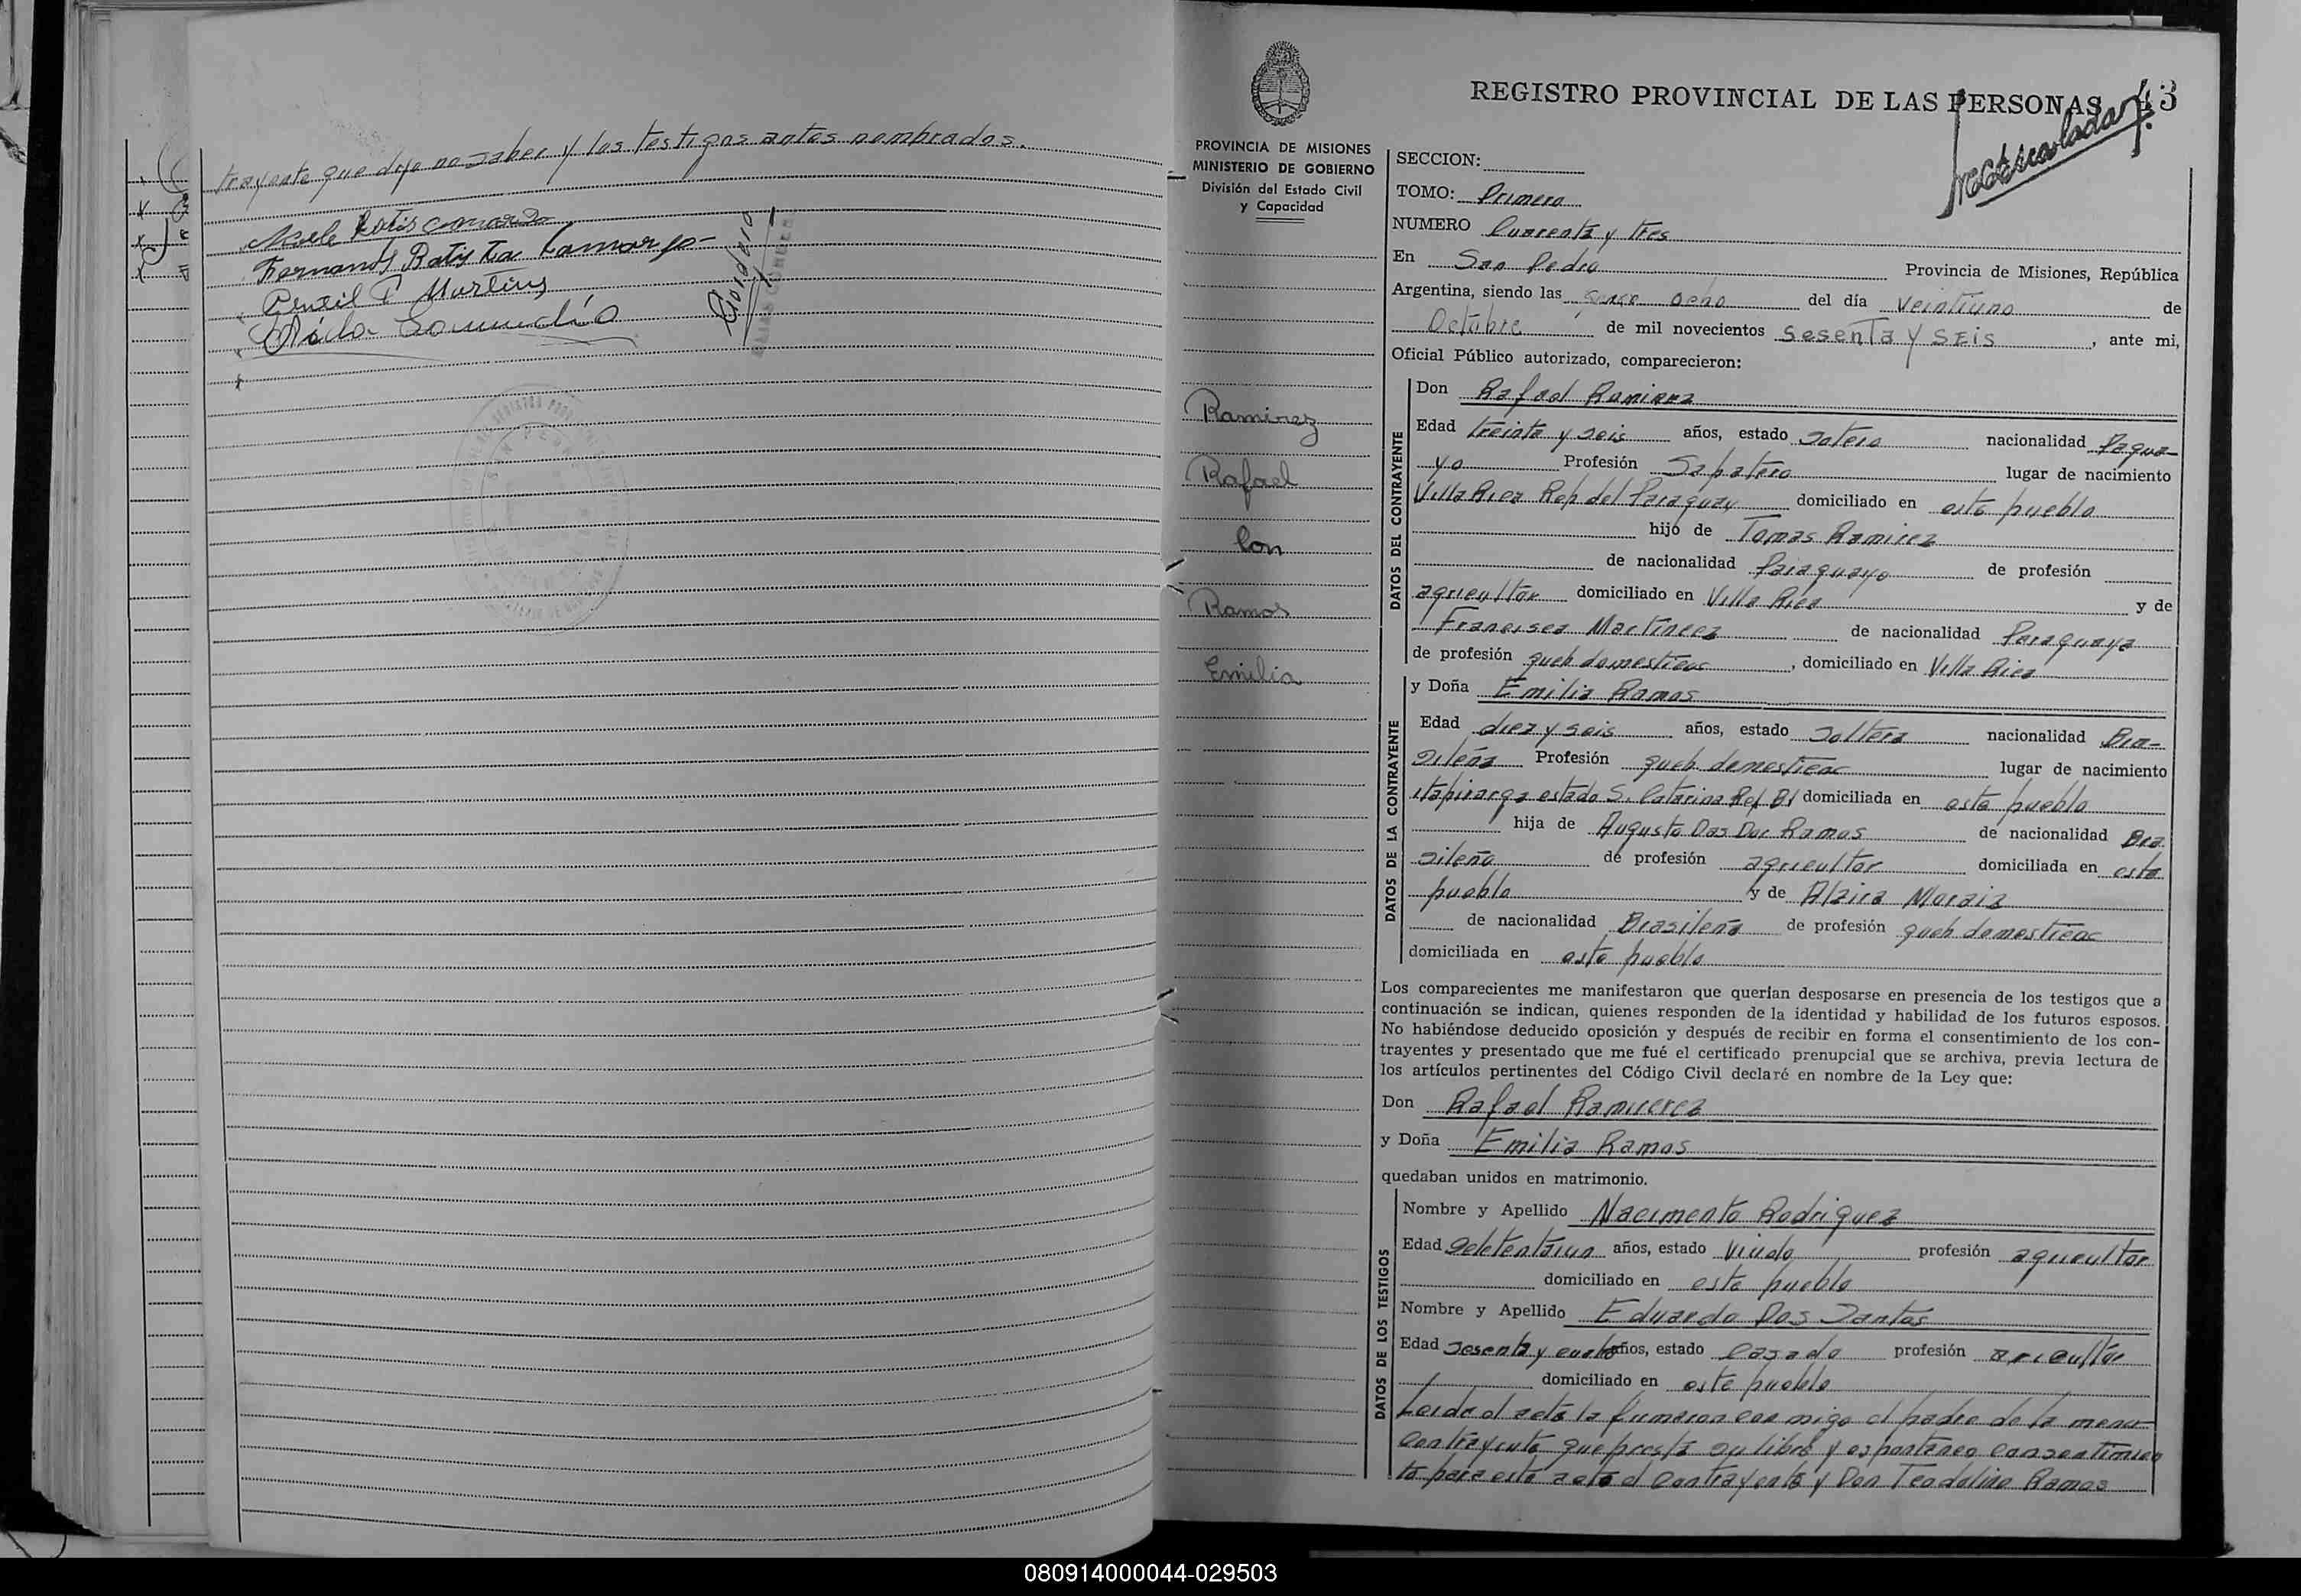 trayente que dijo no saber y los testigos antes nombrados.
Fernando Batista Camargo
Gentil P Martins
REGISTRO PROVINCIAL DE LAS PERSONAS 43
PROVINCIA DE MISIONES
MINISTERIO DE GOBIERNO
División del Estado Civil
y Capacidad
Ramirez
Rafael
Con
Ramos
Emilia
SECCION:
TOMO: Primero
NUMERO Cuarenta y tres
En San Pedro Provincia de Misiones, República
Argentina, siendo las ocho del día veintiuno de
Octubre de mil novecientos sesenta y SEis, ante mi,
Oficial Público autorizado, comparecieron:
DATOS DEL CONTRAYENTE
Don Rafael Ramirez
Edad treinta y seis años, estado Sotero nacionalidad Pagua-
yo Profesión Sapatero lugar de nacimiento
Villa Rica Rep del Paraguay domiciliado en este pueblo
hijo de Tomas Ramirez
de nacionalidad Paraguayo de profesión
agricultor domiciliado en Villa Rica y de
Francisca Martineez de nacionalidad Paraguaya
de profesión queh domesticac, domiciliado en Villa Rica
DATOS DE LA CONTRAYENTE
y Doña Emilia Ramos
Edad diez y seis años, estado Soltera nacionalidad Bra-
sileña Profesión queh. domesticac lugar de nacimiento
itapiranga estado S. Catarina Rep Bl domiciliada en este pueblo
hija de Augusto Das Dor Ramos de nacionalidad Bra
sileño de profesión agricultor domiciliada en este
pueblo y de Alzira Moraiz
de nacionalidad Brasileña de profesión queh domesticac
domiciliada en este pueblo
Los comparecientes me manifestaron que querían desposarse en presencia de los testigos que a
continuación se indican, quienes responden de la identidad y habilidad de los futuros esposos.
No habiéndose deducido oposición y después de recibir en forma el consentimiento de los con-
trayentes y presentado que me fué el certificado prenupcial que se archiva, previa lectura de
los artículos pertinentes del Código Civil declaré en nombre de la Ley que:
Don Rafael Ramirerez
y Doña Emilia Ramos
quedaban unidos en matrimonio.
DATOS DE LOS TESTIGOS
Nombre y Apellido Nacimento Rodriguez
Edad Setetentaiun años, estado Viudo profesión agricultor
domiciliado en este pueblo
Nombre y Apellido Eduardo Dos Santos
Edad Sesenta y cuatro años, estado Casado profesión aricultor
domiciliado en este pueblo
Leida el acta la firmaron con migo el padre de la menor
Contrayente que presta su libre y espontaneo Consentimien
to para este acto el Contrayente y Don Teodolino Ramos
080914000044-029503